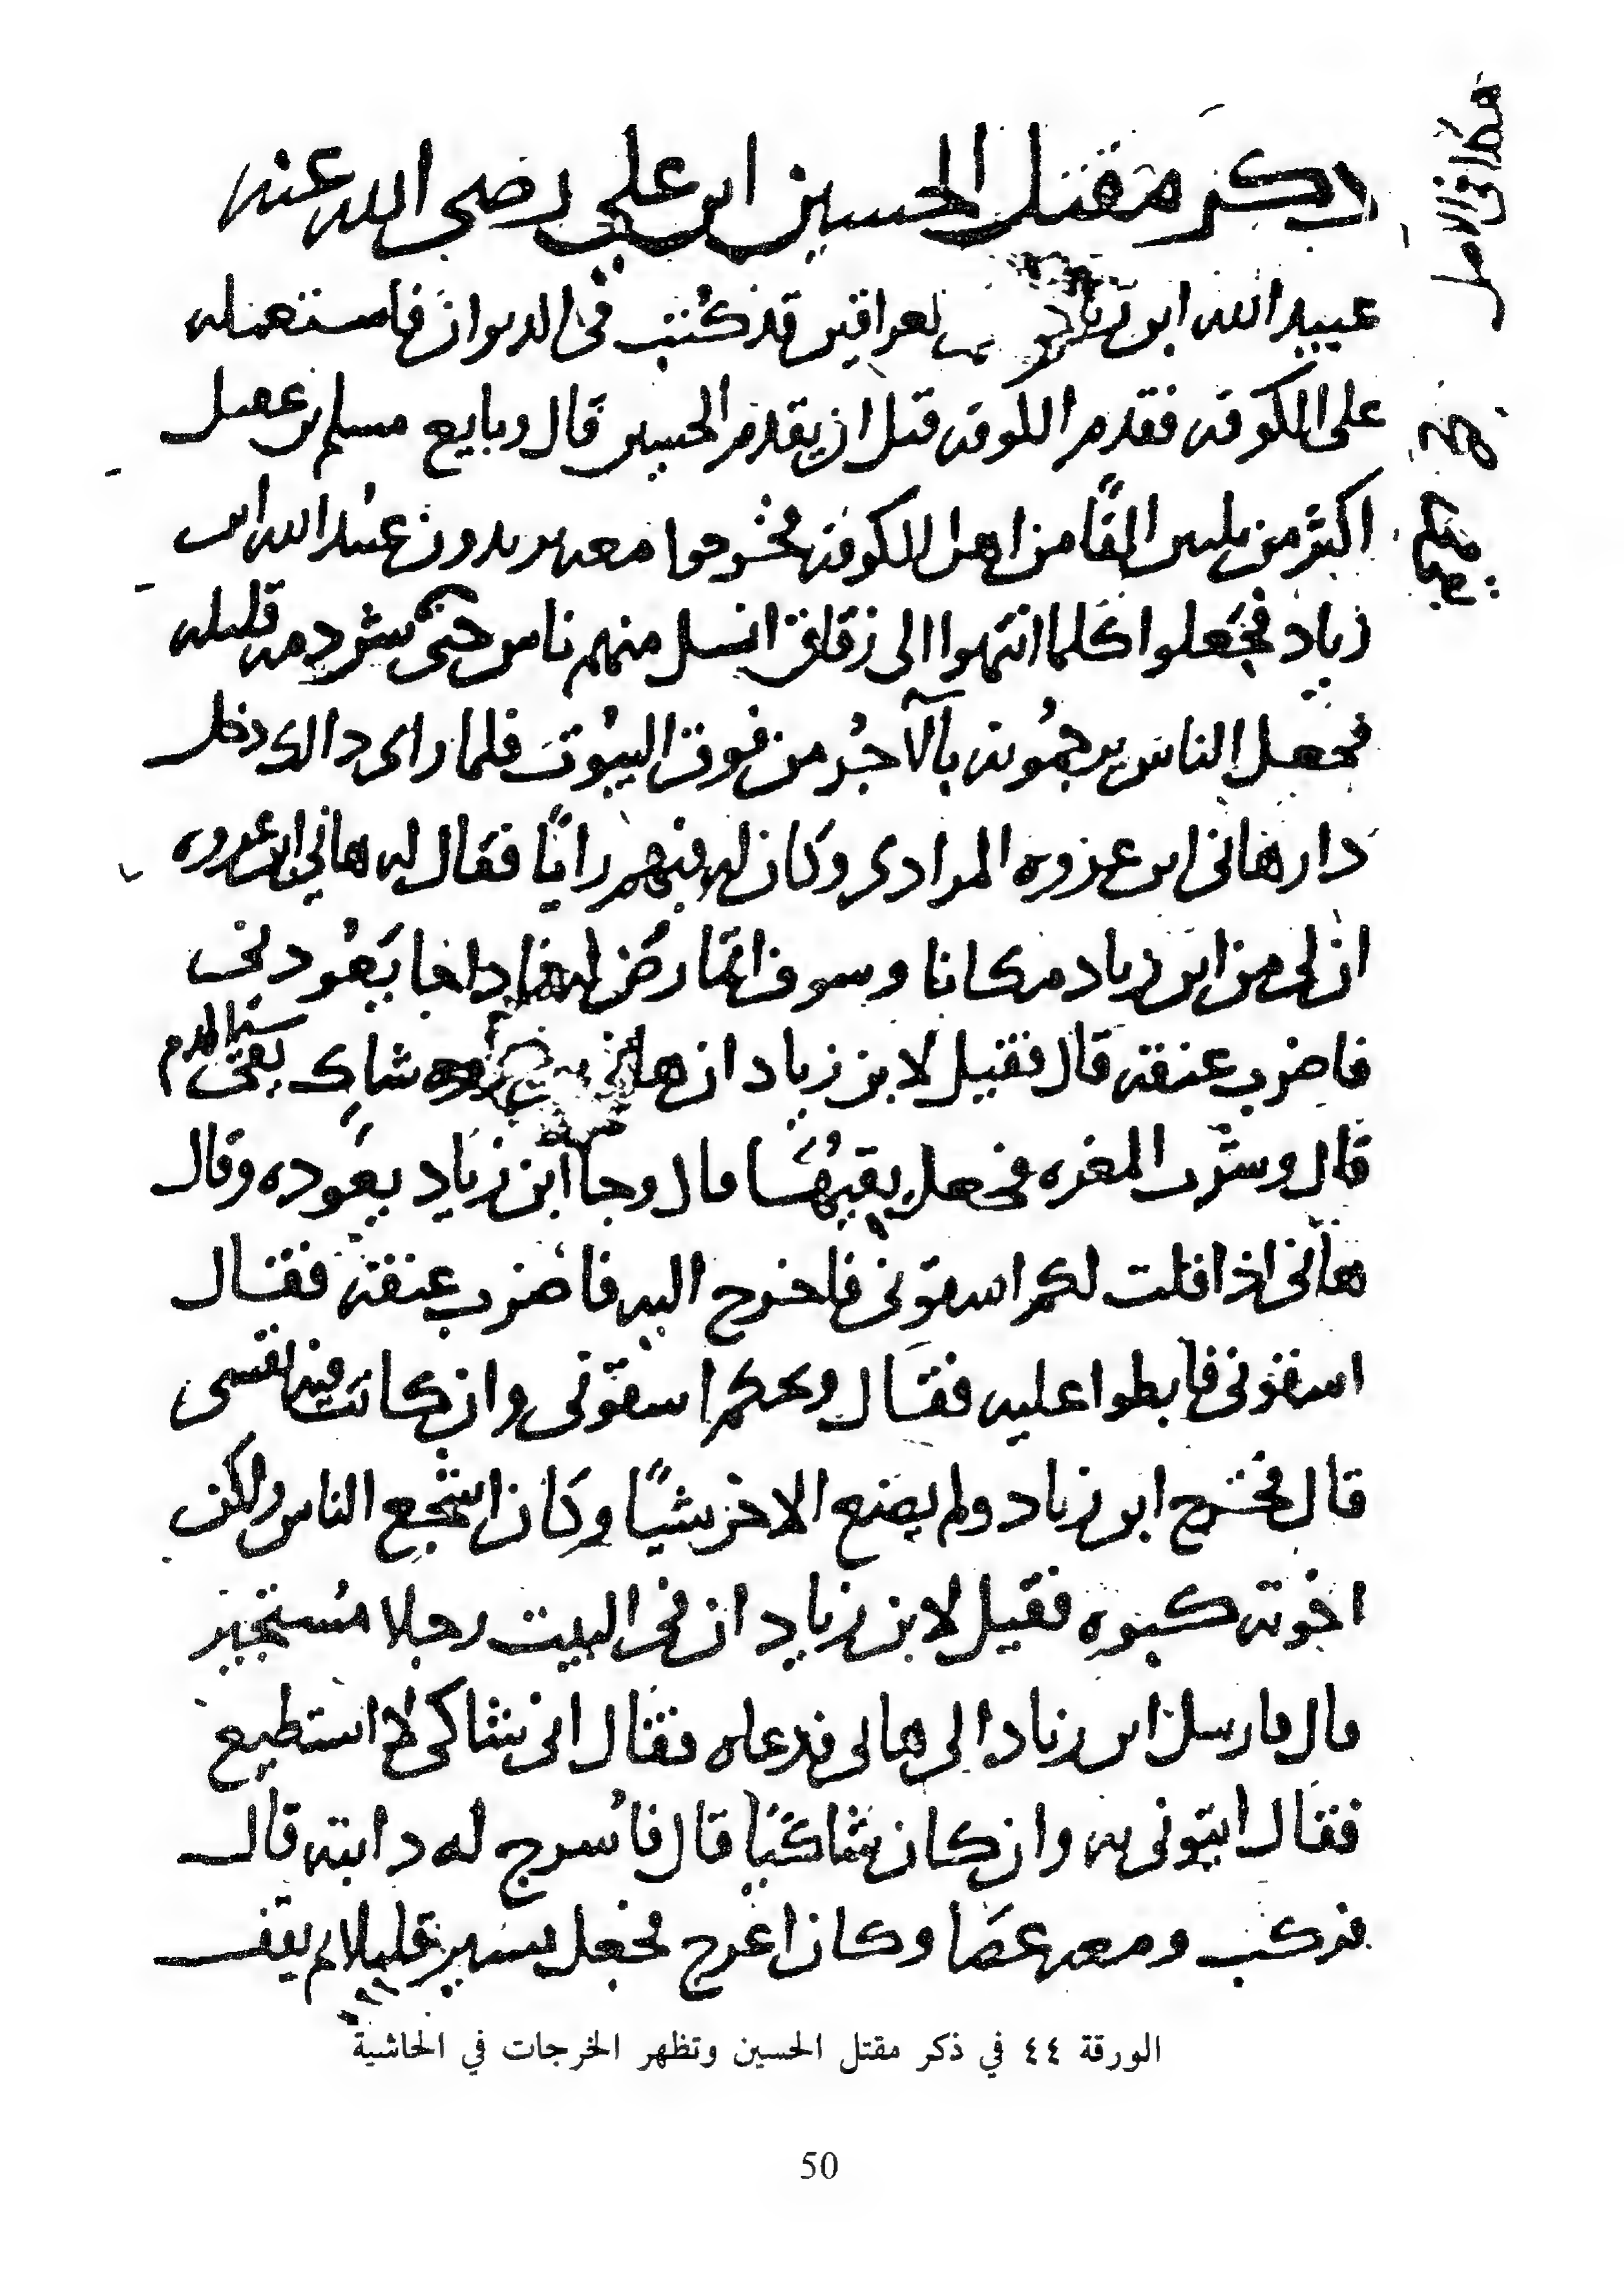 ذكر مقتل الحسين ابن علي رضي الله عنه
هكذا في الاصل
عبيد الله ابن زياد لعراقين قد كتب في الديوان فاستعمله
على الكوفه فقدم الكوفه قبل ان يقدم الحسين قال وبايع مسلم بن عقيل
اكثر من ثلثين الفًا من اهل الكوفه فخرجوا معه يريدون عبيد الله ابن
زياد فجعلوا كلما انتهوا الى زقاق انسل منهم ناس حتى شردمه قليله
فجعل الناس يرجمونه بالآجُر من فوق البيُوت فلما راى دالك دخل
دار هانى ابن عروه المرادى وكان له فيهم رايًا فقال له هاني ابن عروه
ان لى من ابن زياد مكانا وسوف اتمارض له فاذا جا يعُودنى
فاضرب عنقه قال فقيل لابن زياد ان هانى شاك يقى الدم
قال وشرب المغره فجعل يقيها قال وجا ابن زياد يعوده وقال
هانى اذا قلت لكم اسقونى فاخرج اليه فاضرب عنقه فقال
اسقونى فابطوا عليه فقال ويحكم اسقونى وان كانت فيه نفسى
قال فخرج ابن زياد ولم يصنع الاخر شيًا وكان اشجع الناس ولكن
اخوته كبوه فقيل لابن زياد ان في البيت رجلا مُستجير
قال فارسل ابن زياد الى هانى فدعاه فقال انى شاكى لا استطيع
فقال ايتونى به وان كان شاكيًا قال فاسرج له دابته قال
فركب ومعه عصا وكان اعرج فجعل يسير قليلا لم يقف
الورقة ٤٤ في ذكر مقتل الحسين وتظهر الخرجات في الحاشية
50